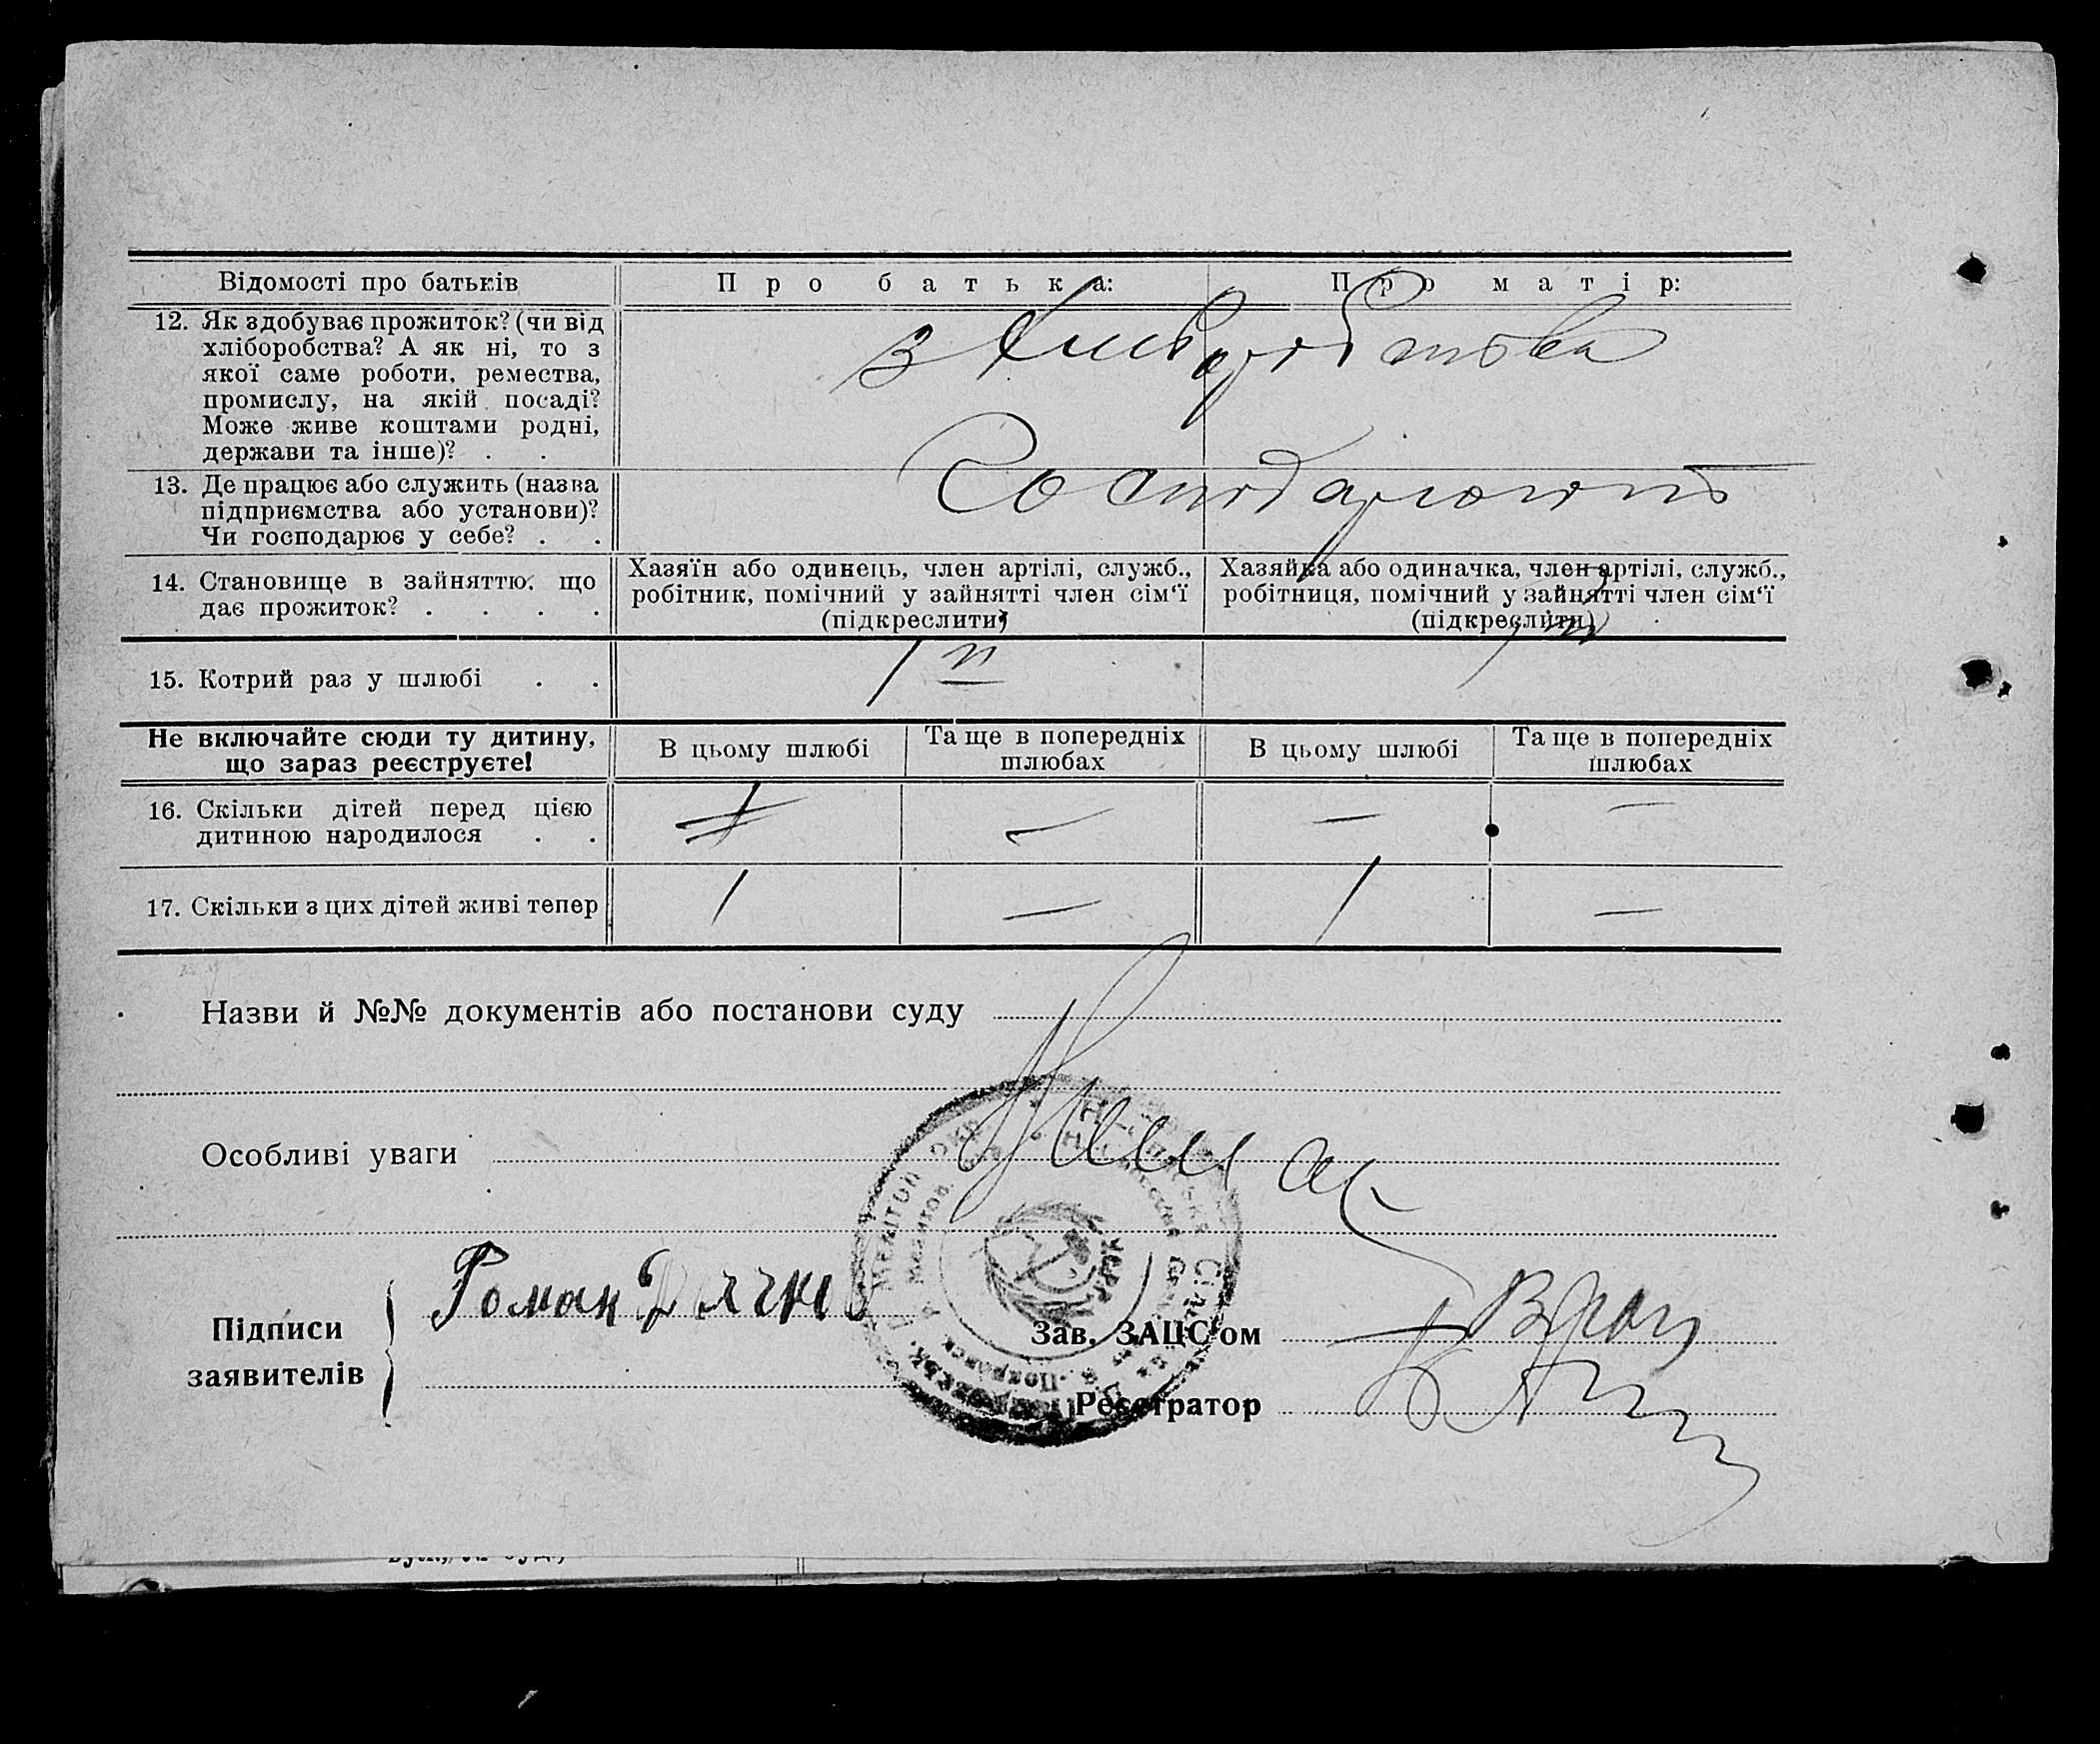 Відомості про батьків
П р о б а т ь к а:
П р о м а т і р:
12. Як здобуває прожиток? (чи від
хліборобства? А як ні, то з
якої саме роботи, ремества,
промислу, на якій посаді?
Може живе коштами родні,
держави та інше)? . .
з хліборобства
13. Де працює або служить (назва
підприємства або установи)?
Чи господарює у себе? . .
Господарюють
14. Становище в зайняттю, що
дає прожиток? . . . .
Хазяїн або одинець, член артілі, служб.,
робітник, помічний у зайнятті член сім‘ї
(підкреслити)
Хазяйка або одиначка, член артілі, служб.,
робітниця, помічний у зайнятті член сім‘ї
(підкреслити)
15. Котрий раз у шлюбі . .
1 й
1
Не включайте сюди ту дитину,
що зараз реєструєте!
В цьому шлюбі
Та ще в попередніх
шлюбах
В цьому шлюбі
Та ще в попередніх
шлюбах
16. Скільки дітей перед цією
дитиною народилося . .
— — —
17. Скільки з цих дітей живі тепер
1 — 1 —
Назви й №№ документів або постанови суду
Особливі уваги
Немає
Підписи
заявителів
Роман Дячко
Зав. ЗАЦС‘ом
Реєстратор